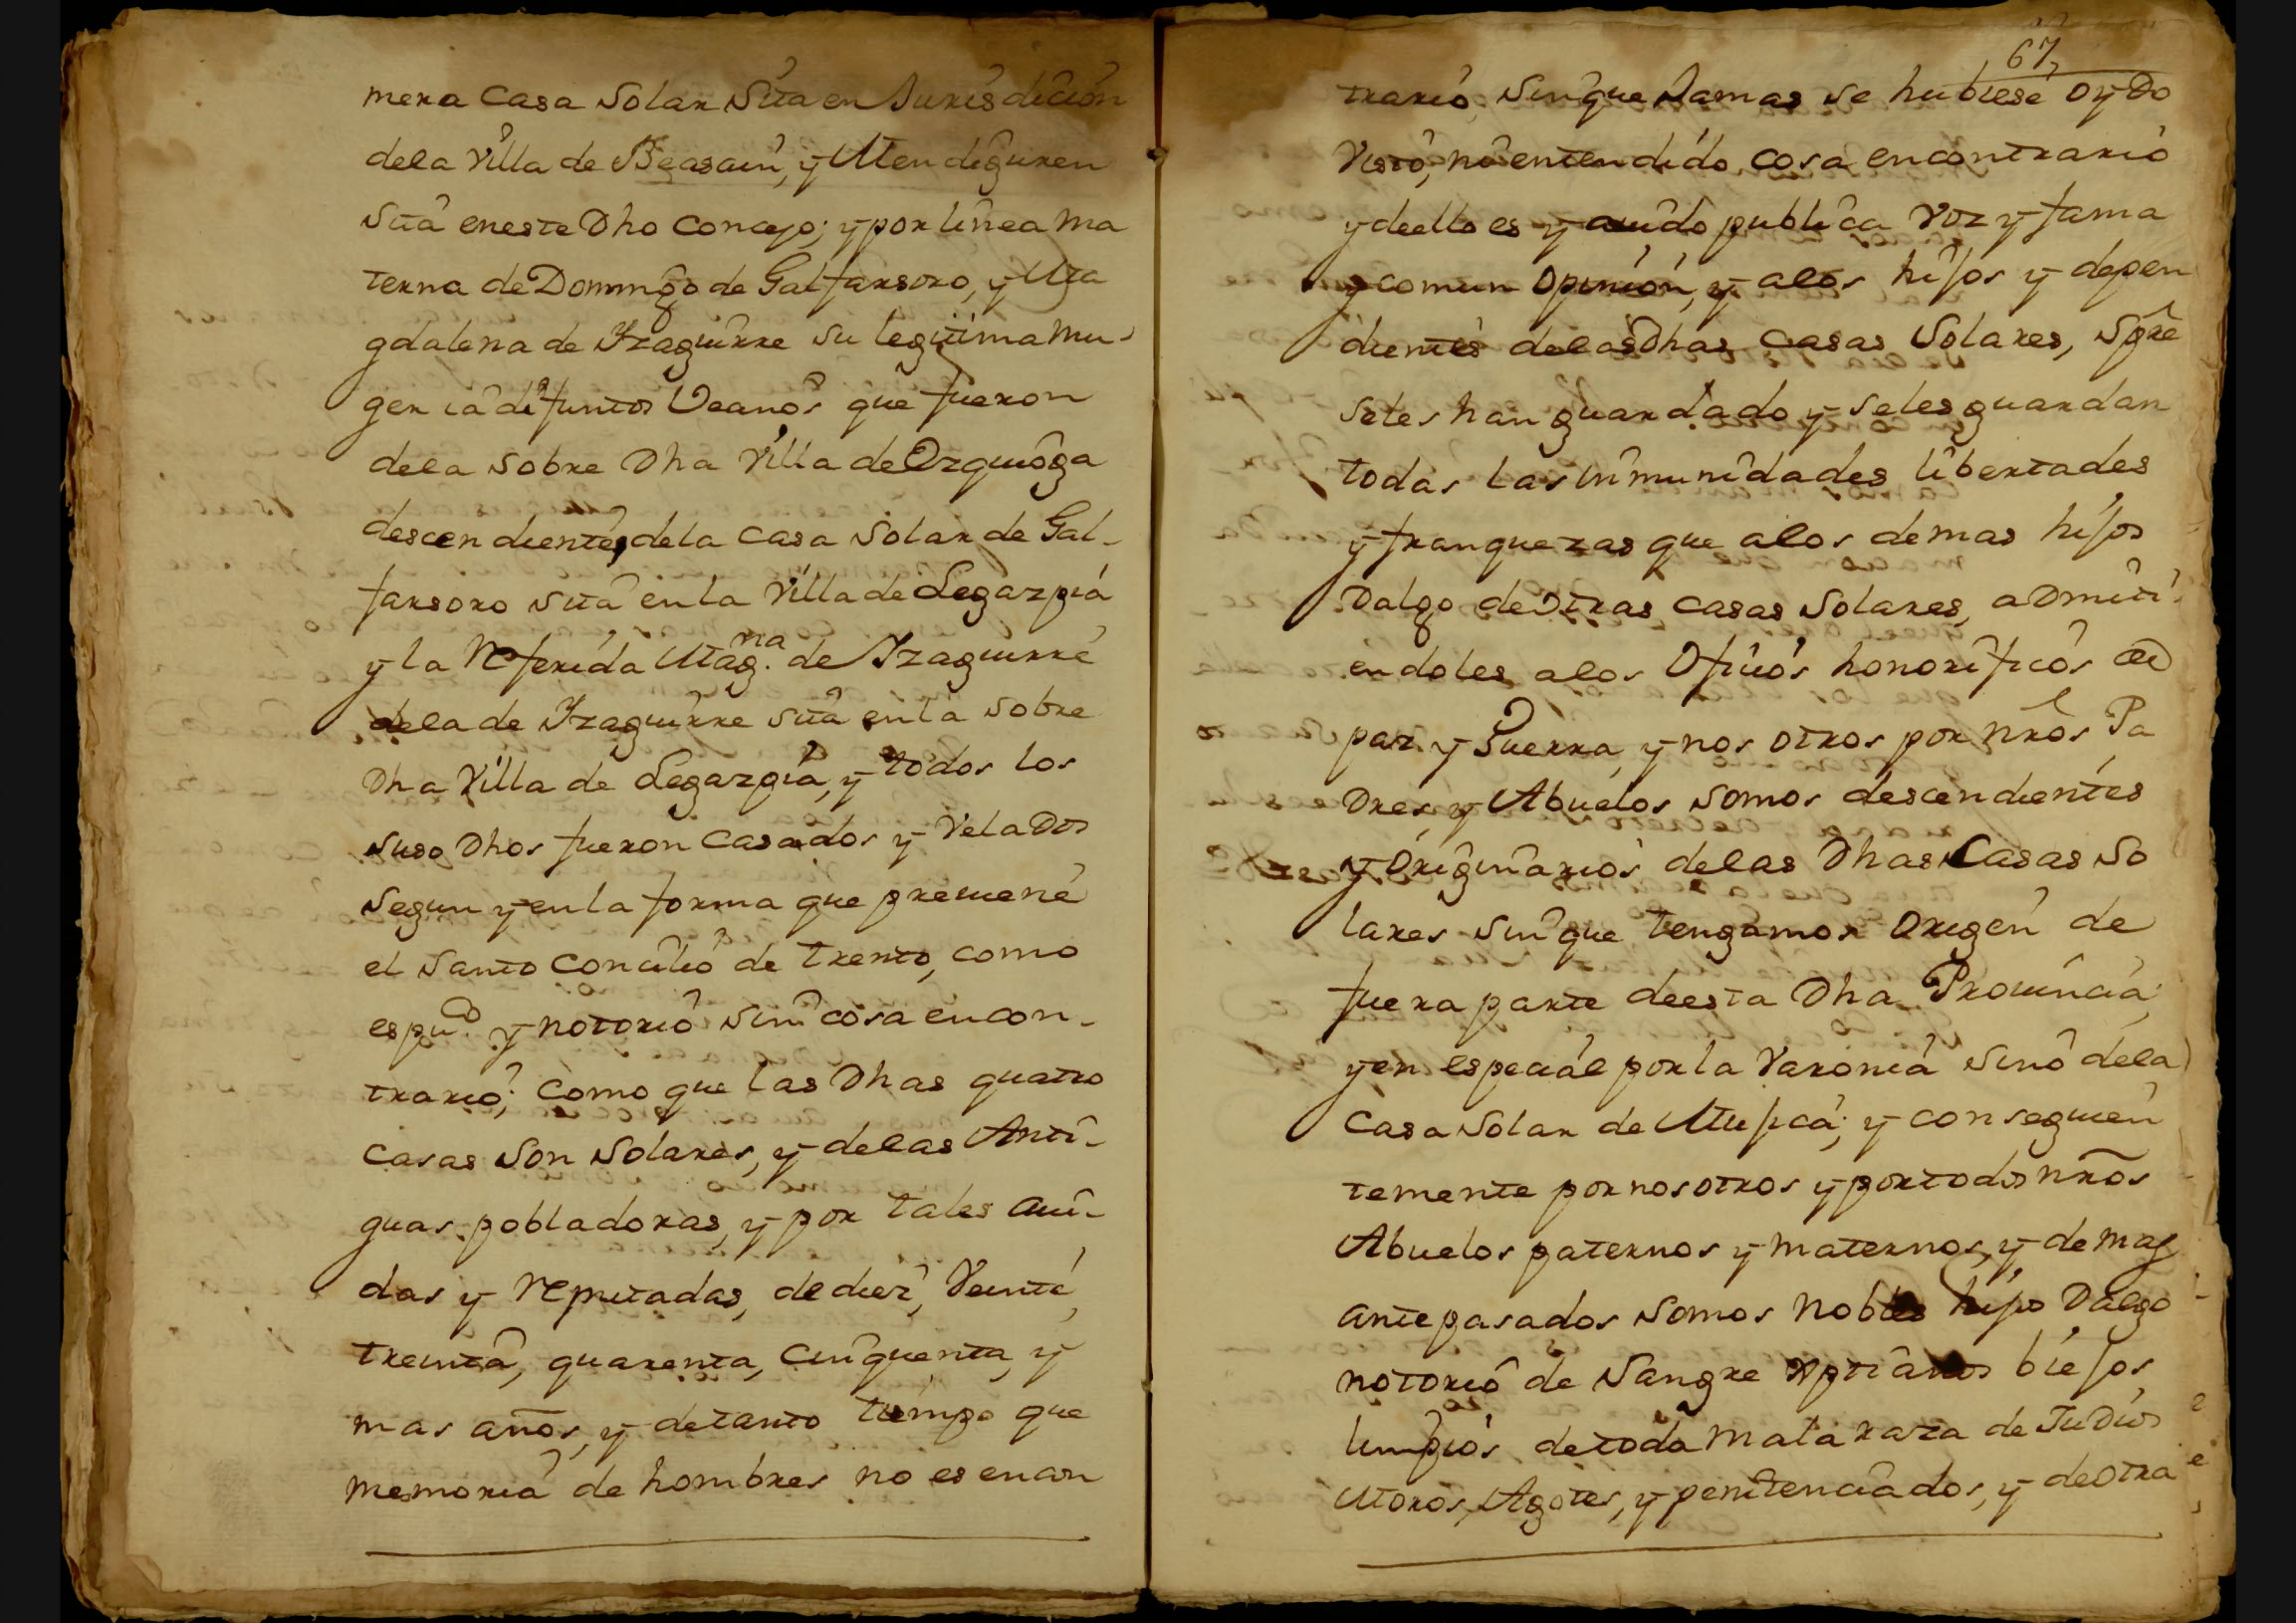 mera casa solar sita en Jurisdicion
dela Villa de Beasain, y Mendiguren
sita eneste Dho concejo; y por linea ma
terna de Domingo de Galfarsoro, y Ma
gdalena de Yzaguirre su legitima mu-
ger ia difuntos Veanos que fueron
dela sobre Dha Villa de Ozquioga
descendientes dela casa solar de Gal-
farsoro sita en la Villa de Legazpia
y la Referida Mag.na de Yzaguirre
dela de Yzaguirre sita en la sobre
Dha Villa de Legazpia, y todos los
suso Dhos fueron casados y Velados
segun y en la forma que previene
el santo concilio de trento, como
es pu.co y notorio sin cosa encon-
trario; como que las Dhas quatro
casas son solares, y delas Anti-
guas pobladoras, y por tales avi-
das y reputadas, de diez, Veinte,
treinta, quarenta, cinquenta, y
mas años, y detanto tiempo que
memoria de hombres no es encon
67,
trario, sin que Jamas se hubiese oydo
Visto, ni entendido cosa encontrario
y de ello es y avido publica Voz y fama
y comun opinion, y alos hijos y depen
dientes delas Dhas casas solares, spre
seles han guardado y seles guardan
todas las inmunidades libertades
y franquezas que alos demas hijos
Dalgo de otras casas solares, admiti-
endoles alos Oficios honorificos de
paz y Guerra, y nosotros por nros Pa
dres, y Abuelos somos descendientes
y originarios delas Dhas Casas so
lares sin que tengamos origen de
fuera parte de esta Dha Provincia,
y en especial por la Varonia sino dela
casa solar de Mujica; y conseguien
temente por nosotros y por todos nros
Abuelos paternos y maternos, y demas
antepasados somos nobles hijo Dalgo
notorio de sangre xptianos biejos
limpios de toda mala raza de Judios
Moros, Agotes, y penitenciados, y de otra